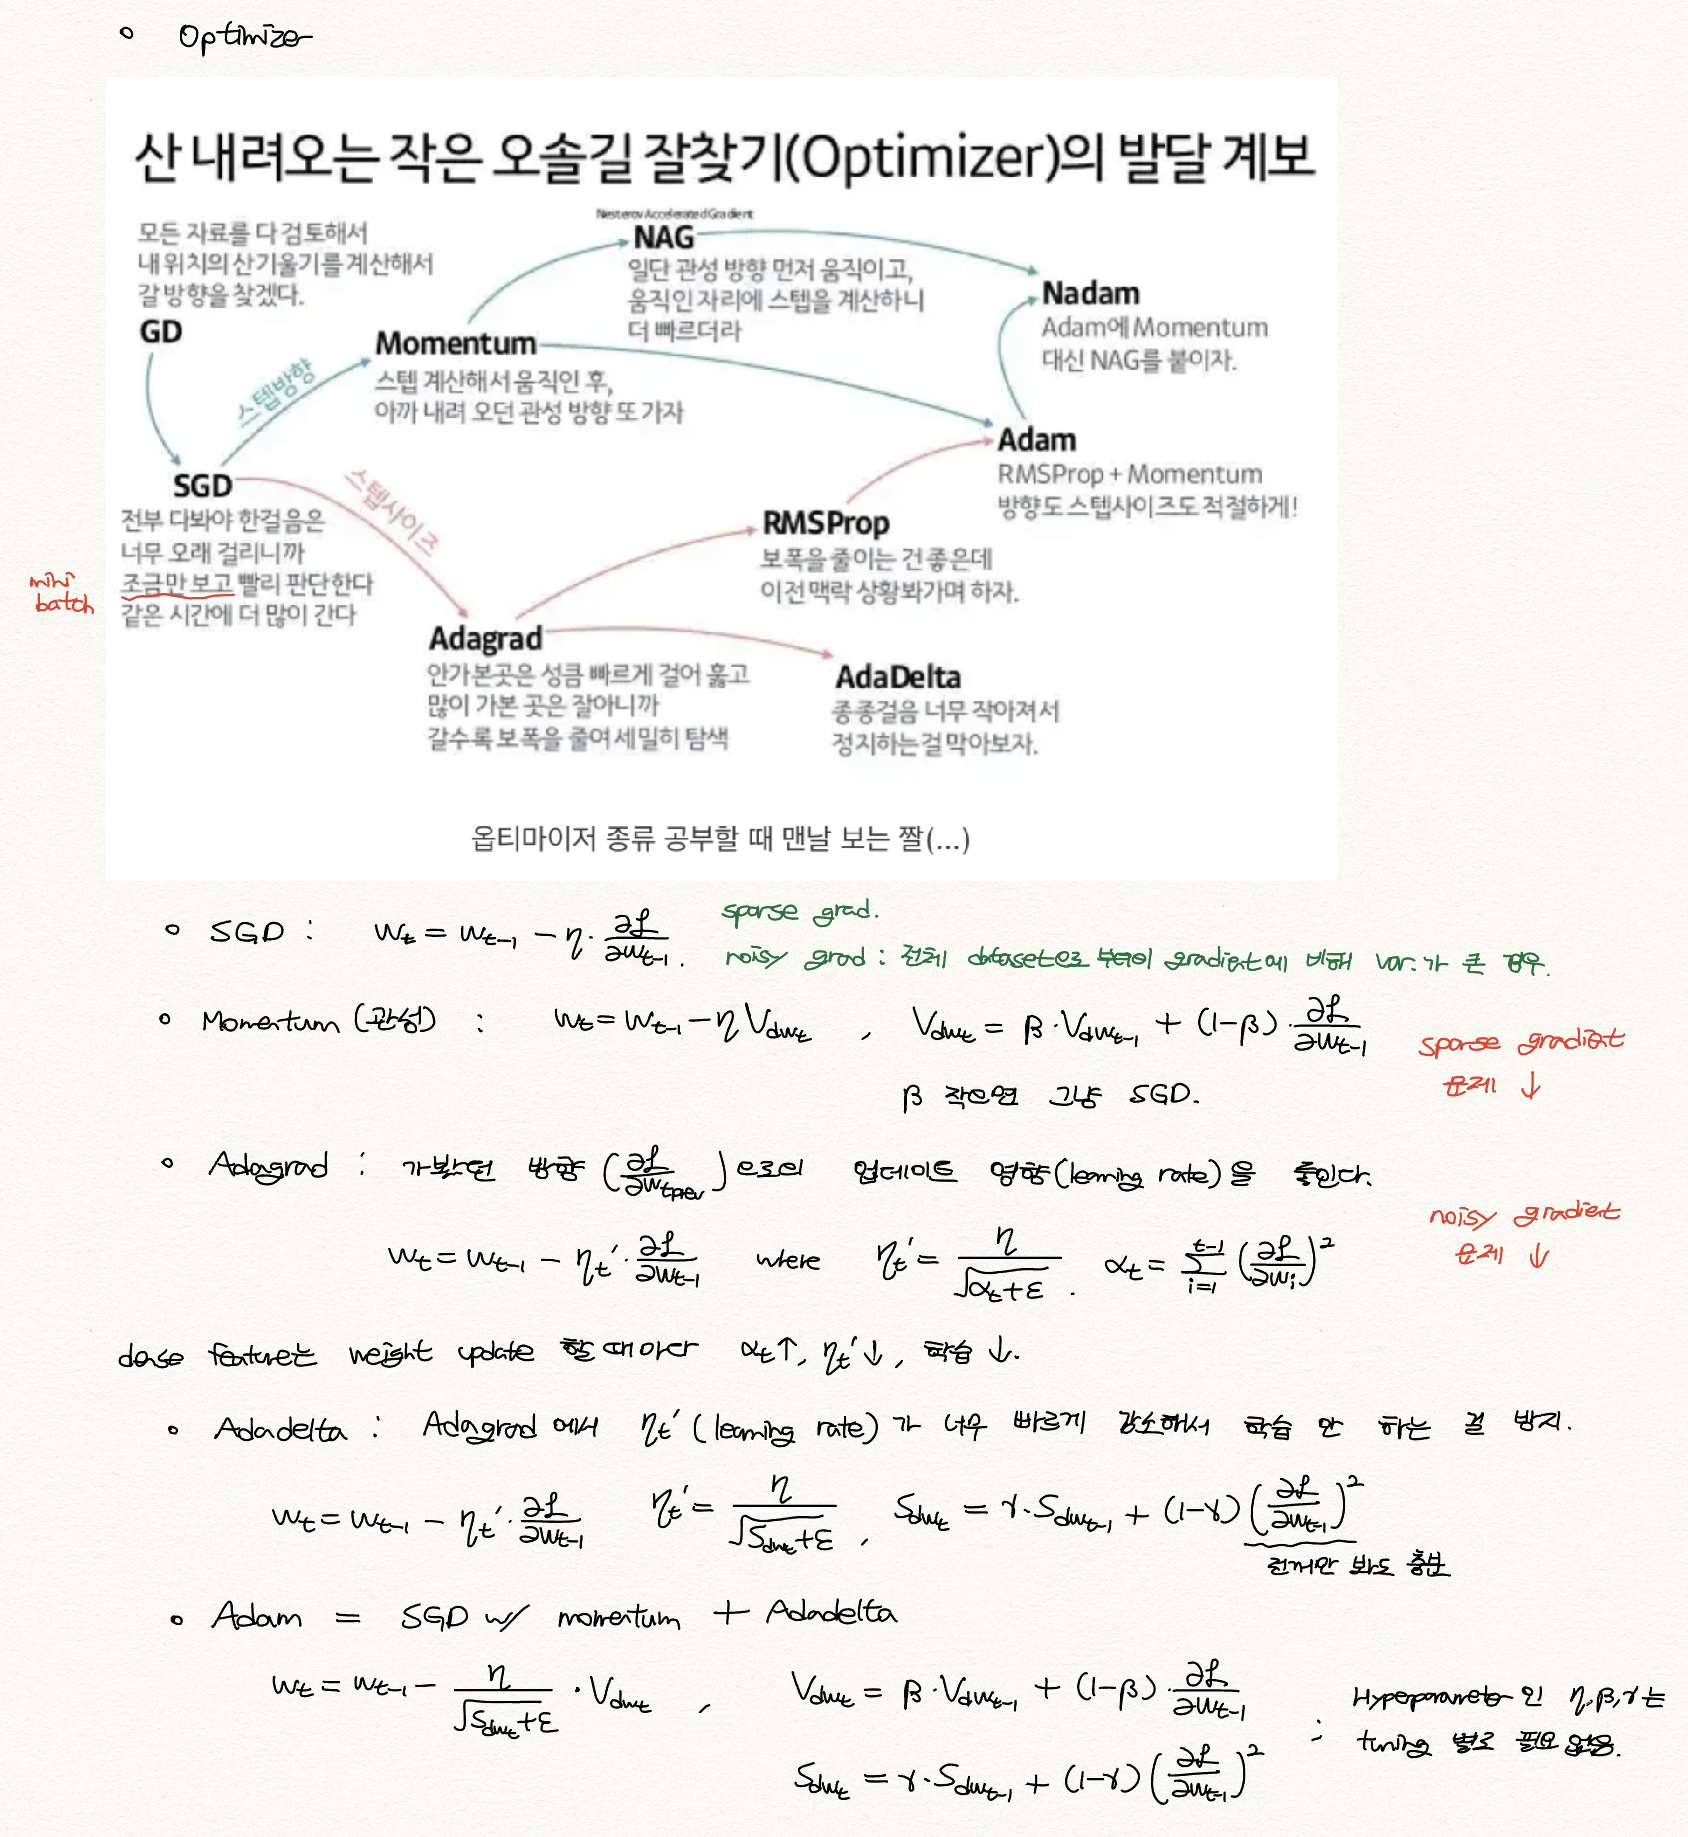 ◦ Optimizer
산 내려오는 작은 오솔길 잘찾기(Optimizer)의 발달 계보
모든 자료를 다 검토해서
내 위치의 산기울기를 계산해서
갈 방향을 찾겠다.
GD
스텝방향
Nesterov Accelerated Gradient
NAG
일단 관성 방향 먼저 움직이고,
움직인 자리에 스텝을 계산하니
더 빠르더라
Momentum
스텝 계산해서 움직인 후,
아까 내려 오던 관성 방향 또 가자
Nadam
Adam에 Momentum
대신 NAG를 붙이자.
Adam
RMSProp + Momentum
방향도 스텝사이즈도 적절하게!
SGD
전부 다봐야 한걸음은
너무 오래 걸리니까
조금만 보고 빨리 판단한다
같은 시간에 더 많이 간다
mini
batch
스텝사이즈
RMSProp
보폭을 줄이는 건 좋은데
이전 맥락 상황봐가며 하자.
Adagrad
안가본곳은 성큼 빠르게 걸어 훑고
많이 가본 곳은 잘아니까
갈수록 보폭을 줄여 세밀히 탐색
AdaDelta
종종걸음 너무 작아져서
정지하는걸 막아보자.
옵티마이저 종류 공부할 때 맨날 보는 짤(...)
sparse grad.
◦ SGD : wₜ = wₜ₋₁ − η · ∂ℒ/∂wₜ₋₁.
noisy grad : 전체 dataset으로 부터의 gradient에 비해 var.가 큰 경우.
◦ Momentum (관성) : wₜ = wₜ₋₁ − η V_dwₜ , V_dwₜ = β · V_dwₜ₋₁ + (1−β) · ∂ℒ/∂wₜ₋₁
sparse gradient
문제 ↓
β 작으면 그냥 SGD.
◦ Adagrad : 가봤던 방향 (∂ℒ/∂w_tprev) 으로의 업데이트 영향(learning rate)을 줄인다.
noisy gradient
문제 ↓
wₜ = wₜ₋₁ − ηₜ′ · ∂ℒ/∂wₜ₋₁ where ηₜ′ = η/√(αₜ+ε) . αₜ = Σ_{i=1}^{t−1} (∂ℒ/∂wᵢ)²
dense feature는 weight update 할 때마다 αₜ↑, ηₜ′↓, 학습 ↓.
◦ Adadelta : Adagrad 에서 ηₜ′ (learning rate)가 너무 빠르게 감소해서 학습 안 하는 걸 방지.
wₜ = wₜ₋₁ − ηₜ′ · ∂ℒ/∂wₜ₋₁ ηₜ′ = η/√(S_dwₜ+ε) , S_dwₜ = γ · S_dwₜ₋₁ + (1−γ) (∂ℒ/∂wₜ₋₁)²
전꺼만 봐도 충분
◦ Adam = SGD w/ momentum + Adadelta
wₜ = wₜ₋₁ − η/√(S_dwₜ+ε) · V_dwₜ , V_dwₜ = β · V_dwₜ₋₁ + (1−β) · ∂ℒ/∂wₜ₋₁
: Hyperparameter인 η, β, γ는
tuning 별로 필요 없음.
S_dwₜ = γ · S_dwₜ₋₁ + (1−γ) (∂ℒ/∂wₜ₋₁)²